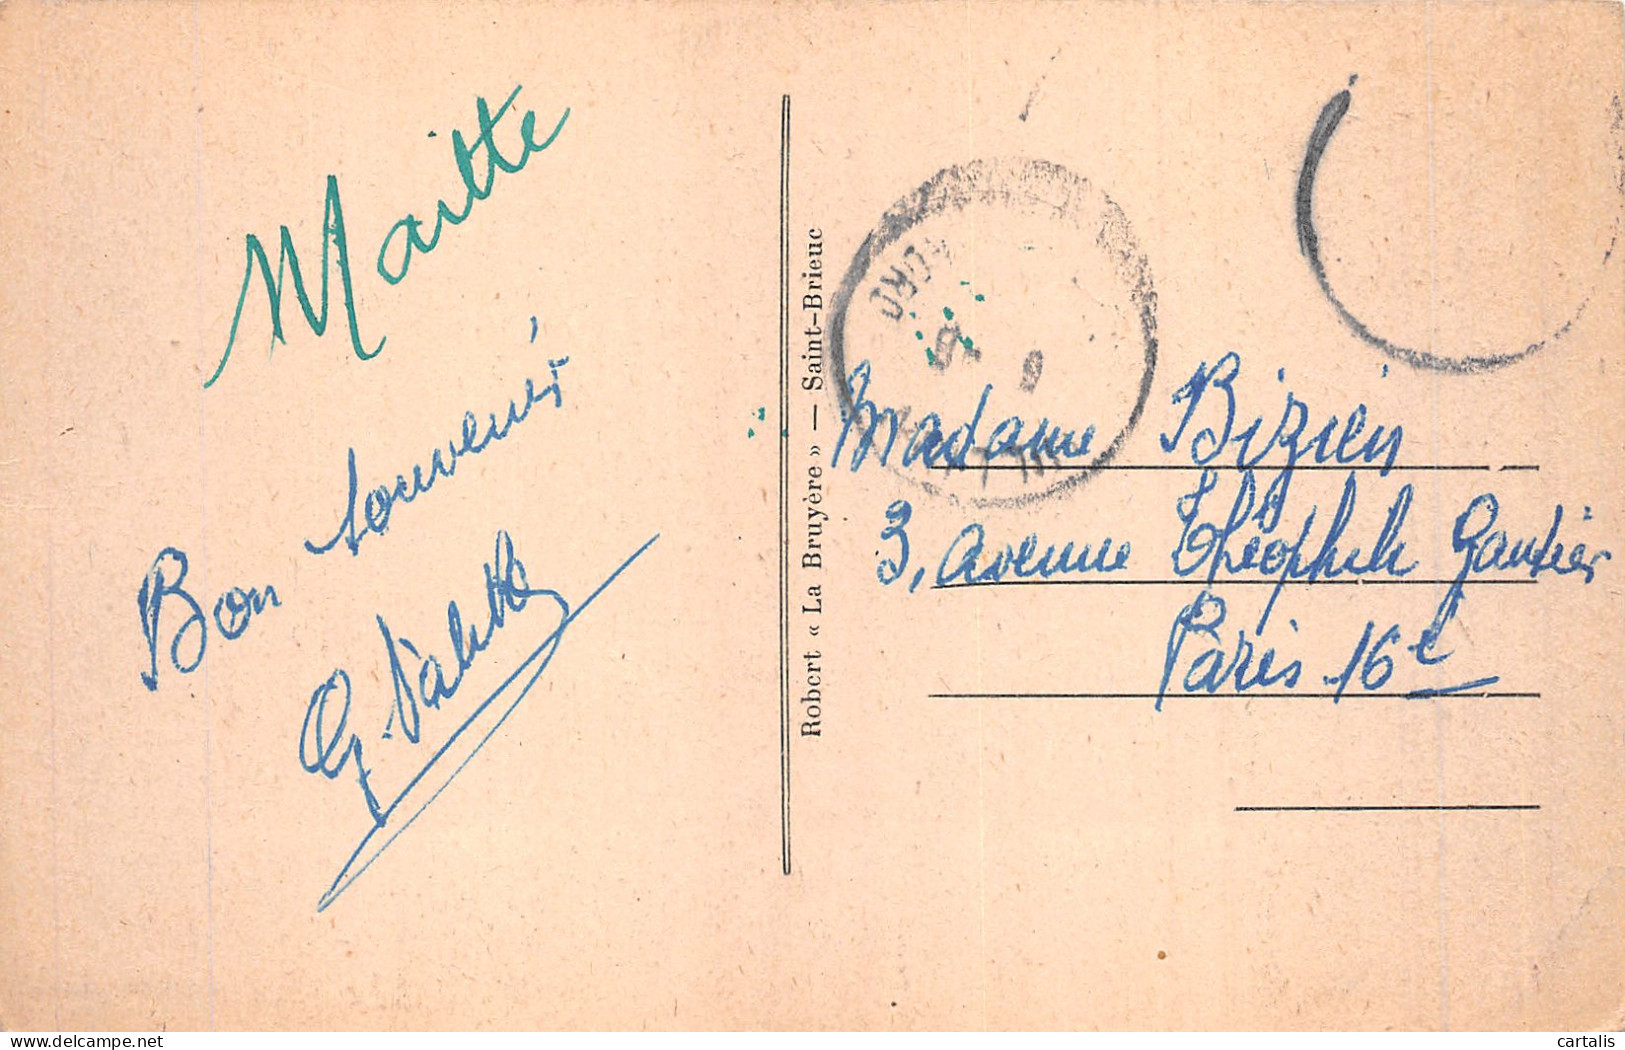 Maitte
Bon souvenir
Robert « La Bruyère » — Saint-Brieuc
Madame Bizien
3, Avenue Théophile Gautier
Paris 16e
delcampe.net
cartalis